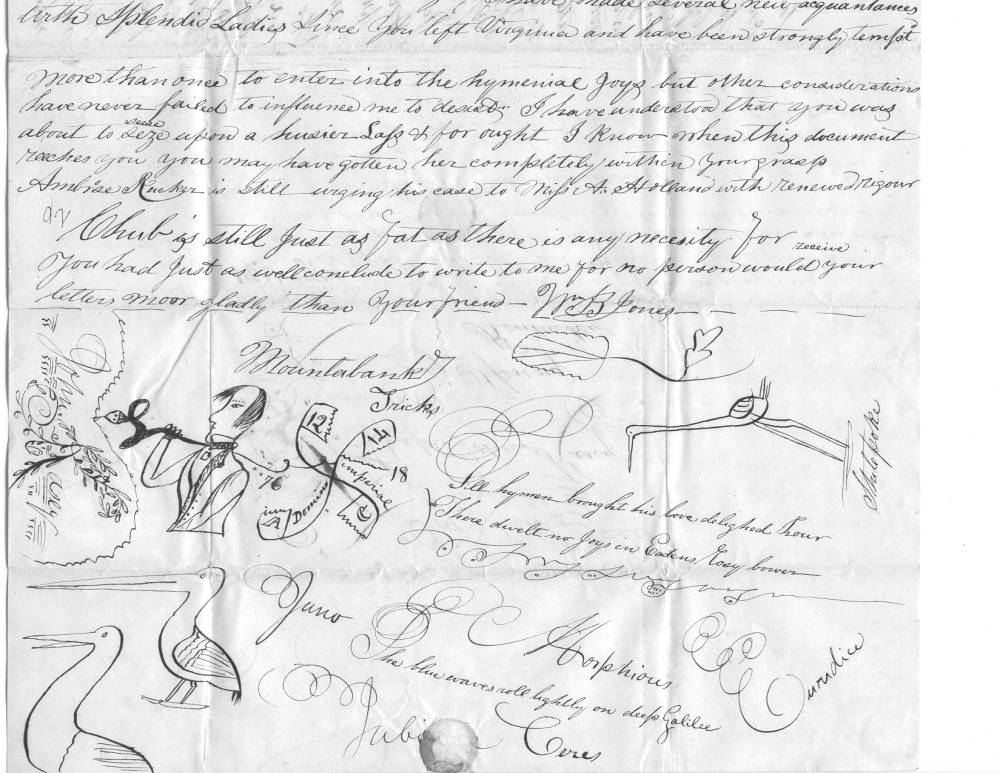 have made several new acquantances
with Splendid Ladies Since You left Virginia and have been strongly tempt
more than once to enter into the hymenial Joys but other considerations
have never failed to influence me to desist; I have understood that you was
about to seze upon a husier Lass & for ought I know when this document
reaches you you may have gotten her completely within your grasp
Ambrose Rucker is still urging his case to Miss A. Holland with renewed rigour
Chub is still Just as fat as there is any necesity for
receive
You had Just as well conclude to write to me for no person would your
letters moor gladly than Your friend — Wm B Jones
Mountabank
Tricks
12
14
18
imperial
A
Domino
Shitepoke
Till hymen brought his love delighed hour
There dwelt no Joys in Eadens Rosy bower
Juno
Morphious
Euridice
The blue waves roll lightly on deep Galilee
Ceres